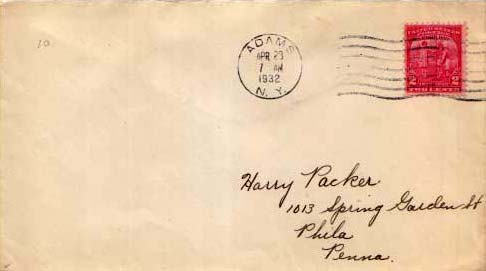 10
ADAMS
APR 23
7 AM
1932
N. Y.
2 2
TWO CENTS
Harry Packer
1013 Spring Garden St
Phila
Penna.